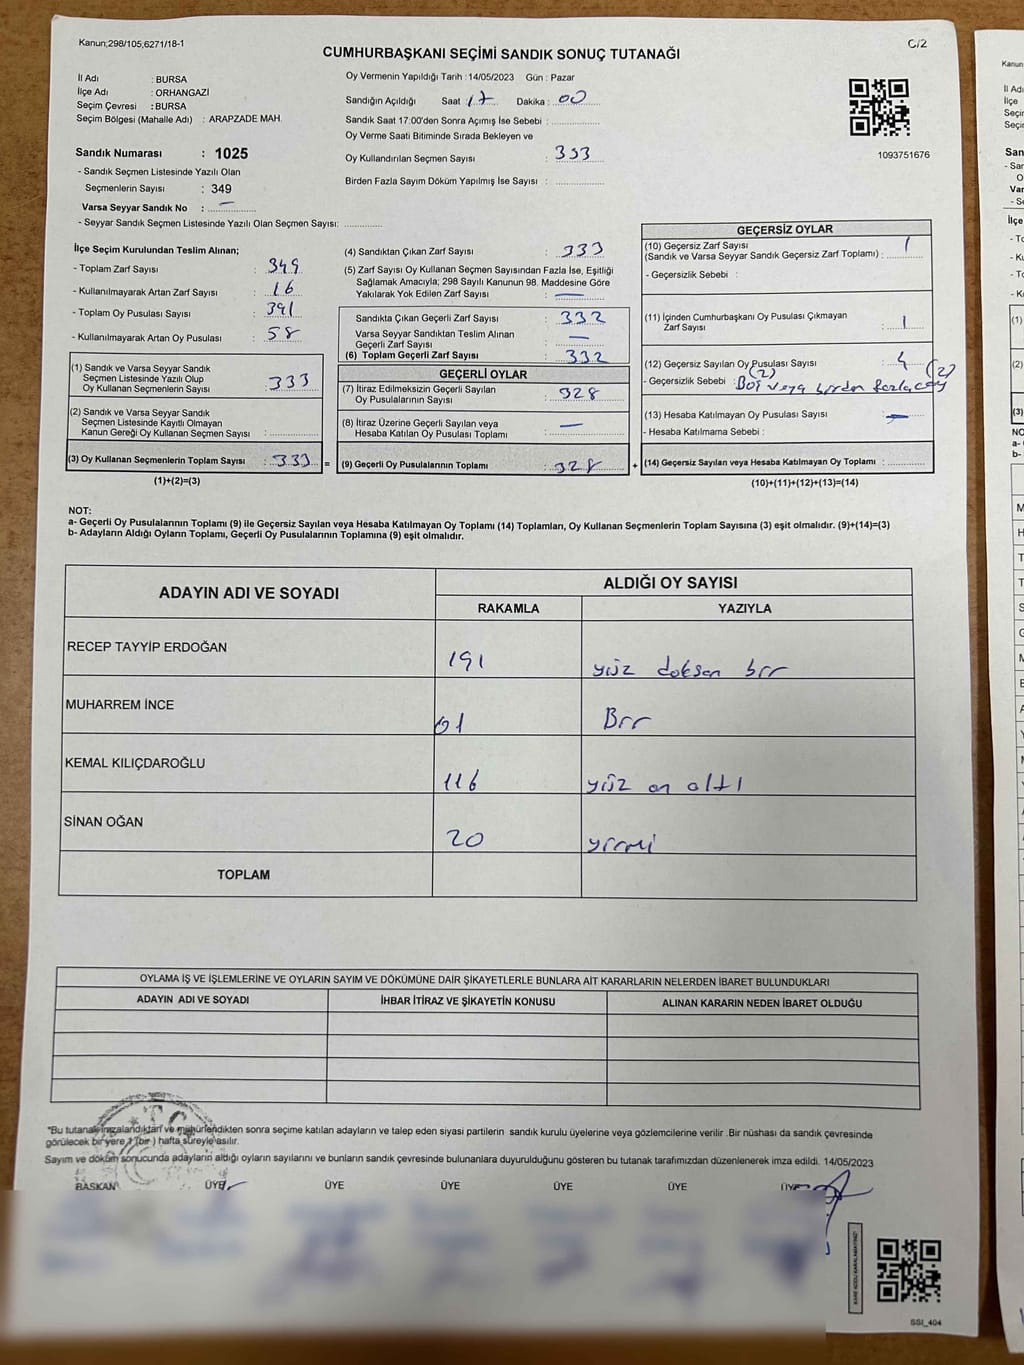 Kanun;298/105,6271/18-1
C/2
CUMHURBAŞKANI SEÇİMİ SANDIK SONUÇ TUTANAĞI
İl Adı : BURSA
İlçe Adı : ORHANGAZİ
Seçim Çevresi : BURSA
Seçim Bölgesi (Mahalle Adı) : ARAPZADE MAH.
Sandık Numarası : 1025
- Sandık Seçmen Listesinde Yazılı Olan
Seçmenlerin Sayısı : 349
Varsa Seyyar Sandık No : —
- Seyyar Sandık Seçmen Listesinde Yazılı Olan Seçmen Sayısı:
Oy Vermenin Yapıldığı Tarih : 14/05/2023 Gün : Pazar
Sandığın Açıldığı Saat : 17 Dakika : 00
Sandık Saat 17:00'den Sonra Açımış İse Sebebi :
Oy Verme Saati Bitiminde Sırada Bekleyen ve
Oy Kullandırılan Seçmen Sayısı : 333
Birden Fazla Sayım Döküm Yapılmış İse Sayısı :
1093751676
İlçe Seçim Kurulundan Teslim Alınan;
- Toplam Zarf Sayısı : 349
- Kullanılmayarak Artan Zarf Sayısı : 16
- Toplam Oy Pusulası Sayısı : 391
- Kullanılmayarak Artan Oy Pusulası : 58
(1) Sandık ve Varsa Seyyar Sandık
Seçmen Listesinde Yazılı Olup
Oy Kullanan Seçmenlerin Sayısı : 333
(2) Sandık ve Varsa Seyyar Sandık
Seçmen Listesinde Kayıtlı Olmayan
Kanun Gereği Oy Kullanan Seçmen Sayısı :
(3) Oy Kullanan Seçmenlerin Toplam Sayısı : 333 =
(1)+(2)=(3)
(4) Sandıktan Çıkan Zarf Sayısı : 333
(5) Zarf Sayısı Oy Kullanan Seçmen Sayısından Fazla İse, Eşitliği
Sağlamak Amacıyla; 298 Sayılı Kanunun 98. Maddesine Göre
Yakılarak Yok Edilen Zarf Sayısı : —
Sandıkta Çıkan Geçerli Zarf Sayısı : 332
Varsa Seyyar Sandıktan Teslim Alınan
Geçerli Zarf Sayısı : —
(6) Toplam Geçerli Zarf Sayısı : 332
GEÇERLİ OYLAR
(7) İtiraz Edilmeksizin Geçerli Sayılan
Oy Pusulalarının Sayısı : 328
(8) İtiraz Üzerine Geçerli Sayılan veya
Hesaba Katılan Oy Pusulası Toplamı : —
(9) Geçerli Oy Pusulalarının Toplamı : 328 +
GEÇERSİZ OYLAR
(10) Geçersiz Zarf Sayısı
(Sandık ve Varsa Seyyar Sandık Geçersiz Zarf Toplamı) : 1
- Geçersizlik Sebebi :
(11) İçinden Cumhurbaşkanı Oy Pusulası Çıkmayan
Zarf Sayısı : 1
(12) Geçersiz Sayılan Oy Pusulası Sayısı : 4
- Geçersizlik Sebebi : Boş (2) veya birden fazla oy (2)
(13) Hesaba Katılmayan Oy Pusulası Sayısı : —
- Hesaba Katılmama Sebebi :
(14) Geçersiz Sayılan veya Hesaba Katılmayan Oy Toplamı :
(10)+(11)+(12)+(13)=(14)
NOT:
a- Geçerli Oy Pusulalarının Toplamı (9) ile Geçersiz Sayılan veya Hesaba Katılmayan Oy Toplamı (14) Toplamları, Oy Kullanan Seçmenlerin Toplam Sayısına (3) eşit olmalıdır. (9)+(14)=(3)
b- Adayların Aldığı Oyların Toplamı, Geçerli Oy Pusulalarının Toplamına (9) eşit olmalıdır.
ADAYIN ADI VE SOYADI ALDIĞI OY SAYISI
RAKAMLA YAZIYLA
RECEP TAYYİP ERDOĞAN 191 yüz doksan bir
MUHARREM İNCE 01 Bir
KEMAL KILIÇDAROĞLU 116 yüz on altı
SİNAN OĞAN 20 yirmi
TOPLAM
OYLAMA İŞ VE İŞLEMLERİNE VE OYLARIN SAYIM VE DÖKÜMÜNE DAİR ŞİKAYETLERLE BUNLARA AİT KARARLARIN NELERDEN İBARET BULUNDUKLARI
ADAYIN ADI VE SOYADI İHBAR İTİRAZ VE ŞİKAYETİN KONUSU ALINAN KARARIN NEDEN İBARET OLDUĞU
T.C.
"Bu tutanak imzalandıktan ve mühürlendikten sonra seçime katılan adayların ve talep eden siyasi partilerin sandık kurulu üyelerine veya gözlemcilerine verilir .Bir nüshası da sandık çevresinde
görülecek bir yere 1 (bir ) hafta süreyle asılır.
Sayım ve döküm sonucunda adayların aldığı oyların sayılarını ve bunların sandık çevresinde bulunanlara duyurulduğunu gösteren bu tutanak tarafımızdan düzenlenerek imza edildi. 14/05/2023
BAŞKAN ÜYE ÜYE ÜYE ÜYE ÜYE ÜYE
KARE KODU KARALAMAYINIZ!
SSI_404